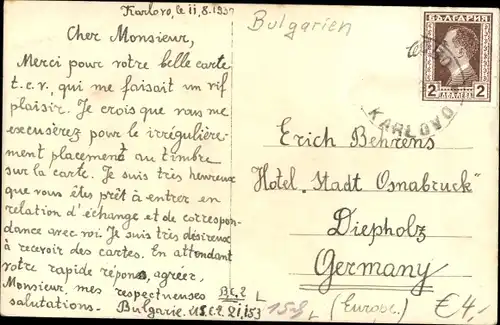 Karlovo, le 11.8.193
Bulgarien
БЪЛГАРИЯ
2 2
KARLOVO
Cher Monsieur,
Merci pour votre belle carte
t.c.v., qui me faisait un vif
plaisir. Je crois que vous me
excuserez pour le irrégulière-
ment placement du timbre
sur la carte. Je suis très heureux
que vous êtes prêt à entrer en
relation d'échange et de correspon-
dance avec moi. Je suis très désireux
à recevoir des cartes. En attendant
votre rapide réponse, agréer,
Monsieur, mes respectueuses
salutations.
Bulgarie.
Erich Behrens
Hotel „Stadt Osnabruck"
Diepholz
Germany
(Europe.)
€4,-